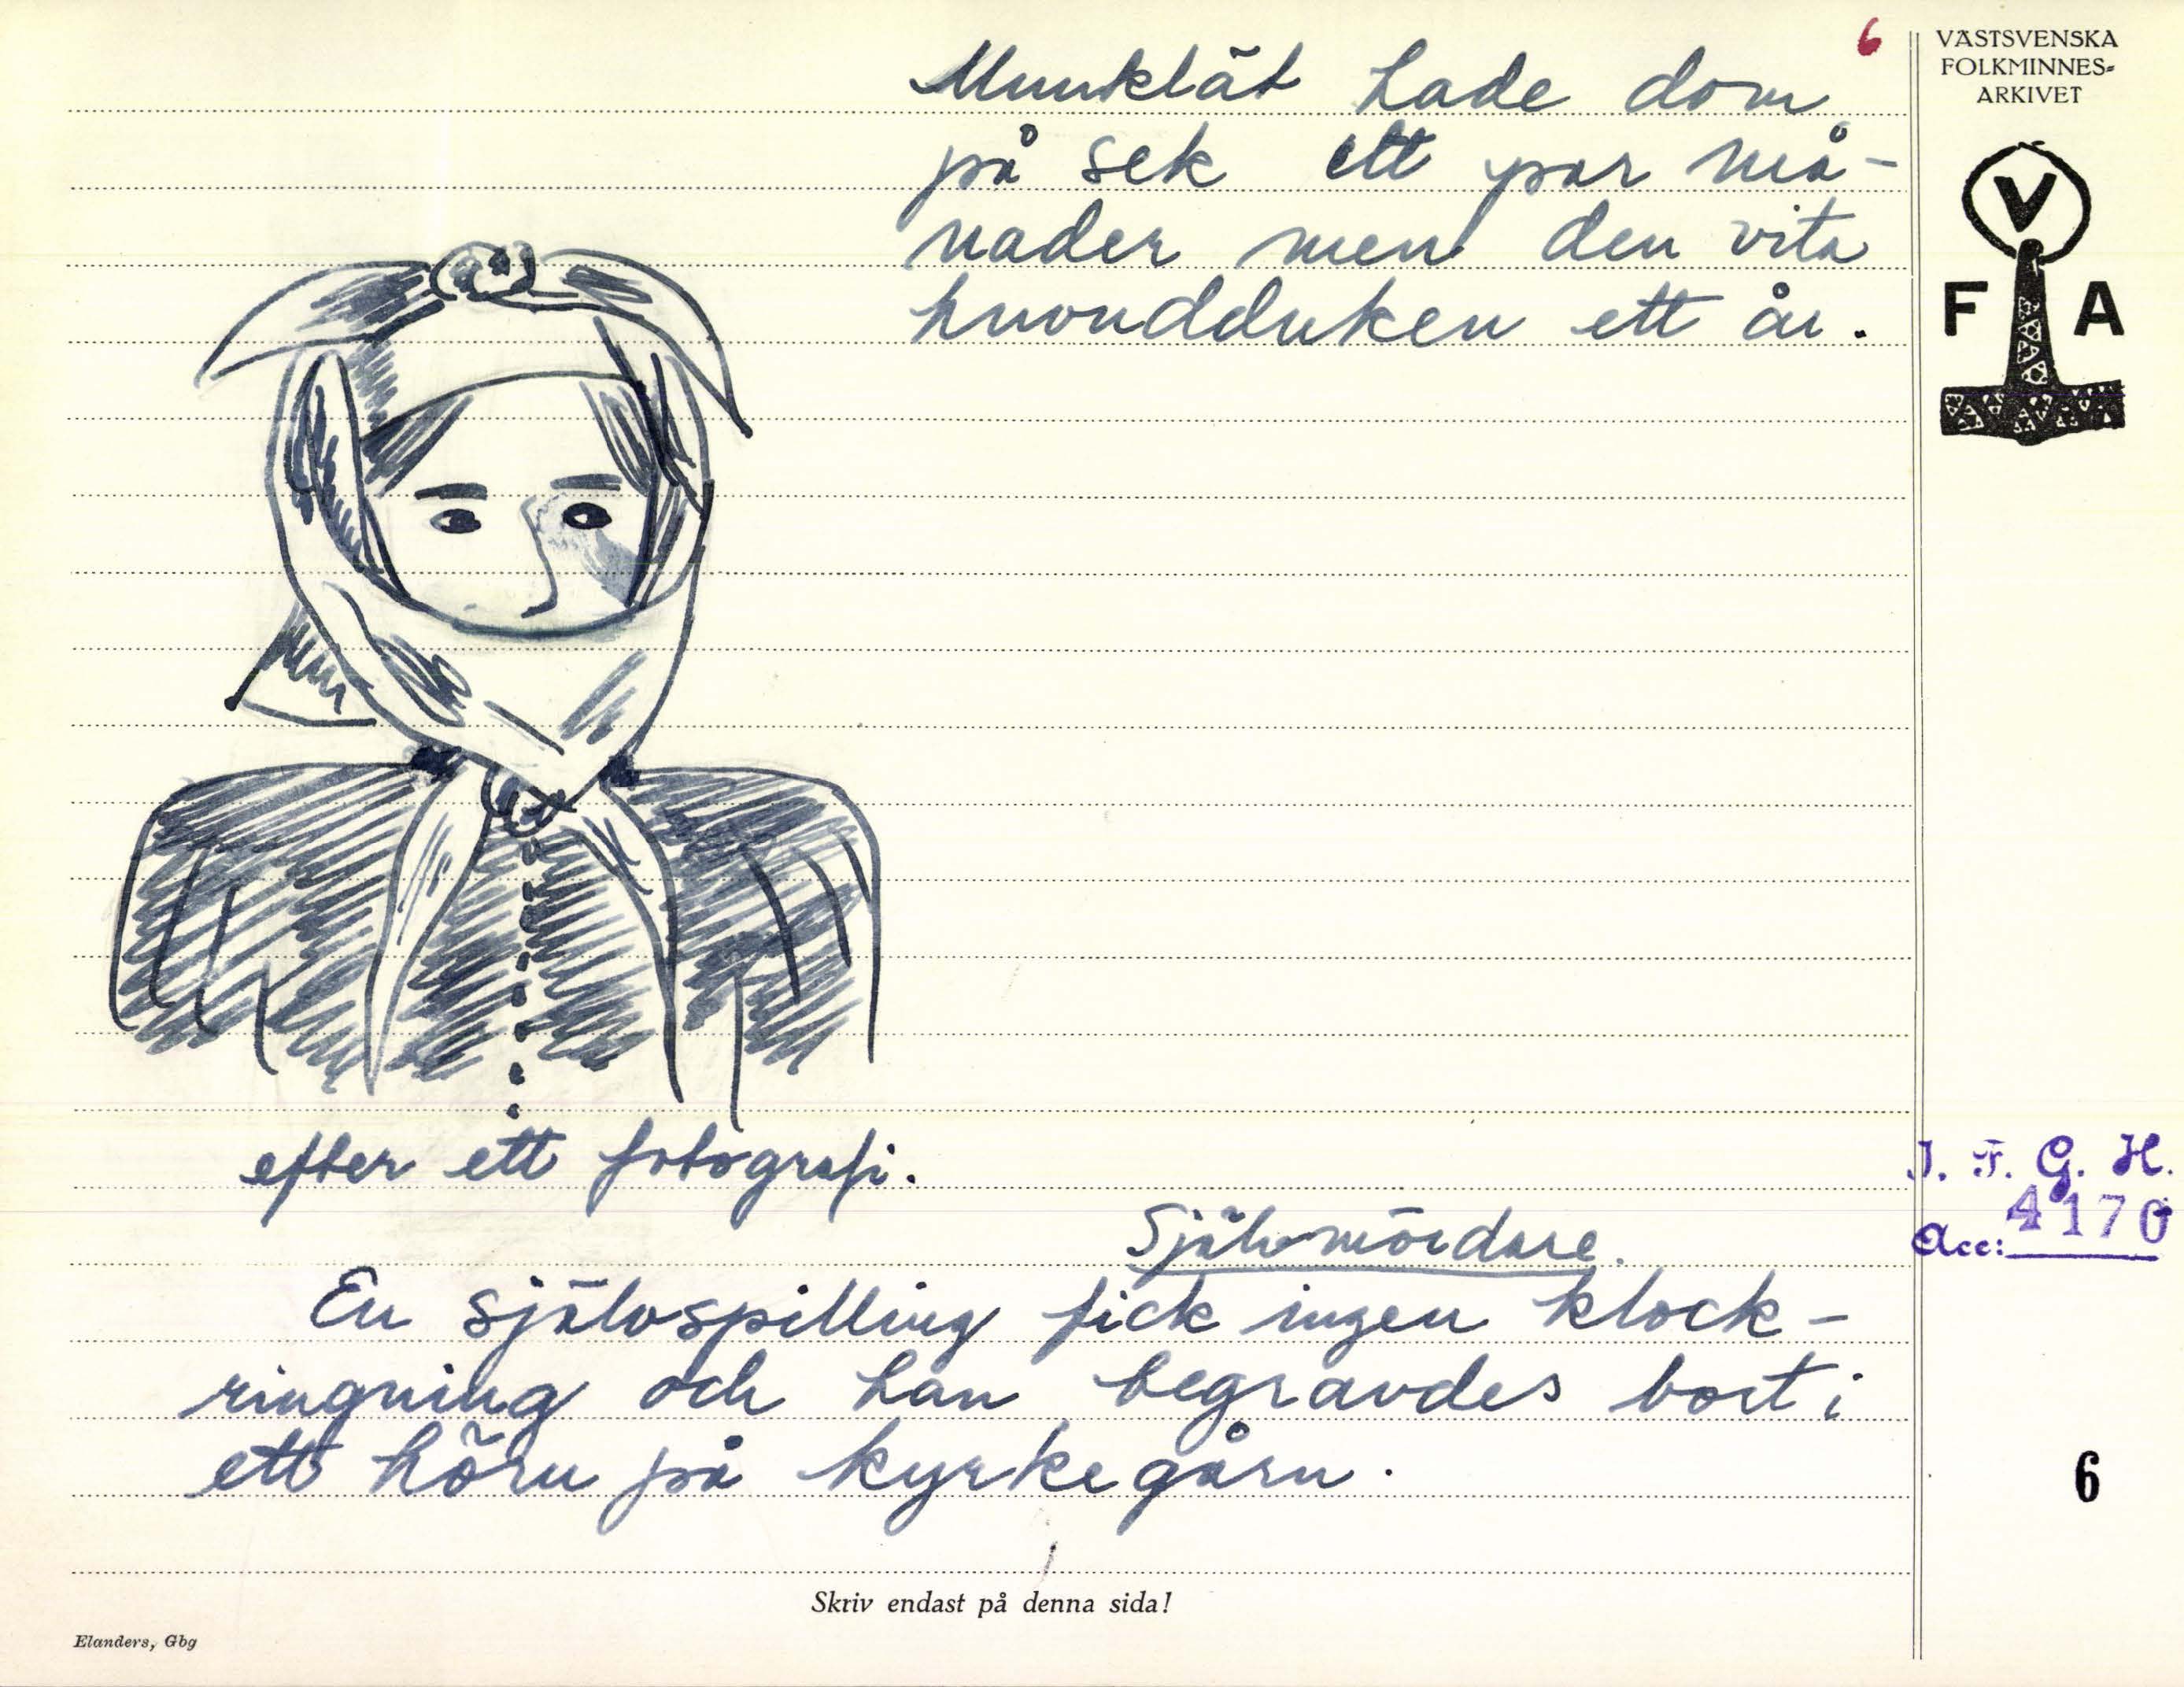 6
Munklät hade dom
på sek ett par må-
nader men den vita
huvudduken ett år.
VÄSTSVENSKA
FOLKMINNES-
ARKIVET
V
F A
efter ett fotografi.
Självmördare.
En självspilling fick ingen klock-
ringning och han begravdes bort i
ett hörn på kyrkegårn.
I. F. G. H.
Acc: 4170
6
Skriv endast på denna sida!
Elanders, Gbg